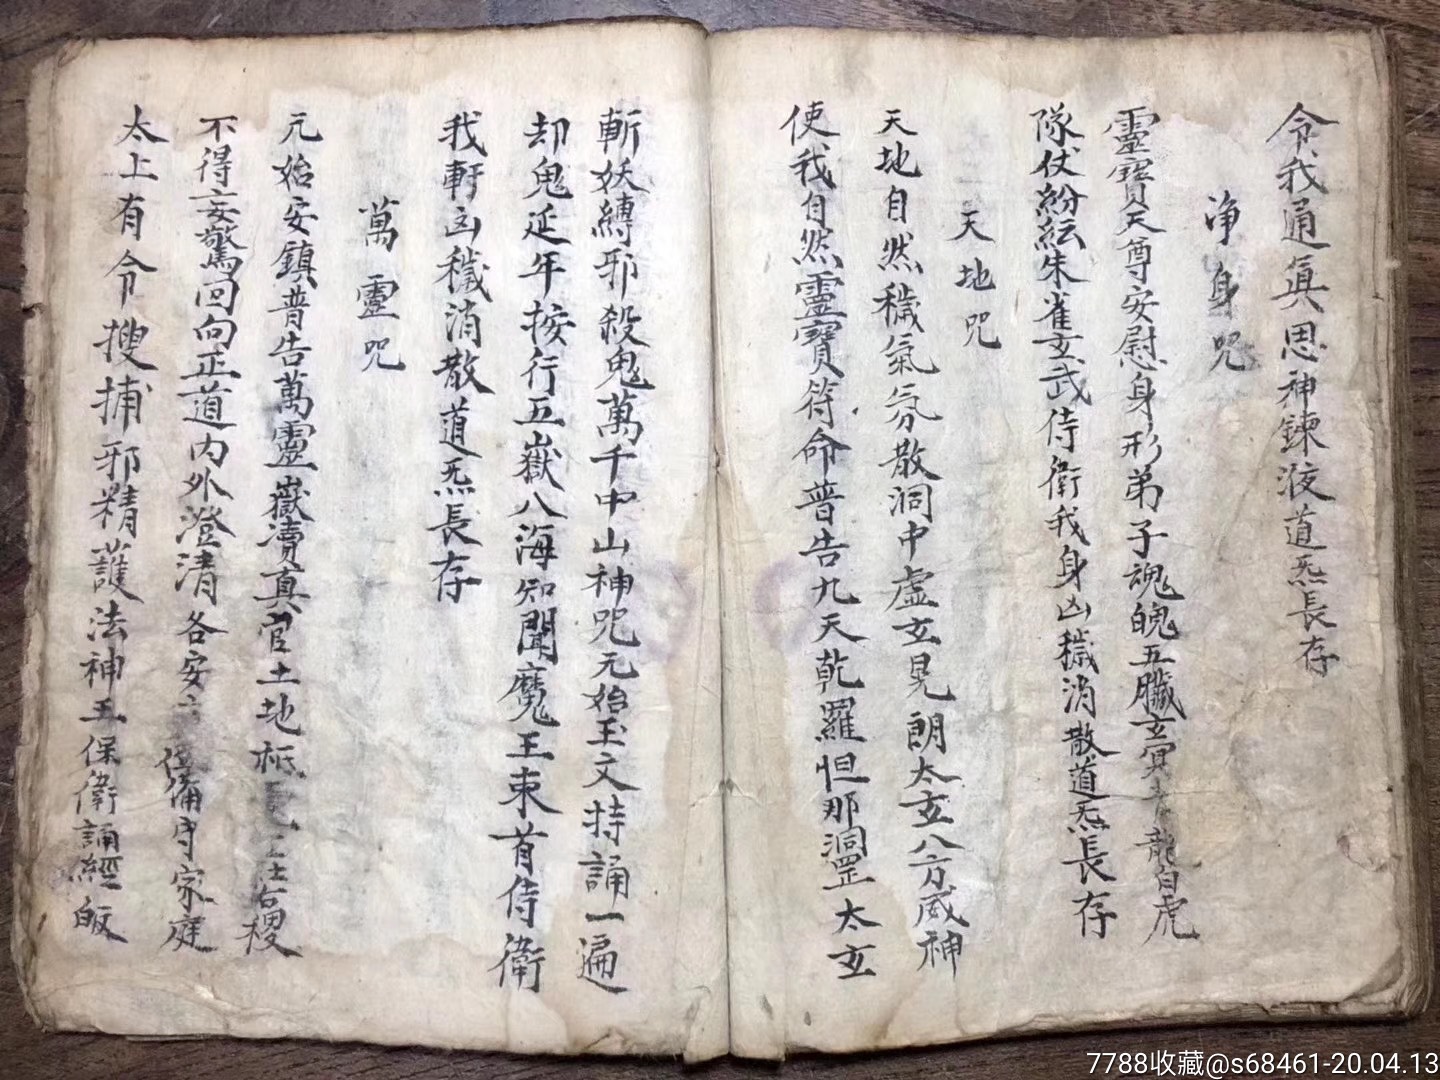 令我通眞思神鍊液道炁長存
净身咒
靈寶天尊安慰身形弟子魂魄五臟玄冥青龍白虎
隊仗紛紜朱雀玄武侍衛我身凶穢消散道炁長存
天地咒
天地自然穢氣氛散洞中虛玄晃朗太玄八方威神
使我自然靈寶符命普告九天乾羅怛那洞罡太玄
斬妖縛邪殺鬼萬千中山神咒元始玉文持誦一遍
却鬼延年按行五嶽八海知聞魔王束首侍衛
我軒凶穢消散道炁長存
萬靈咒
元始安鎮普告萬靈嶽瀆真官土地祇 社稷
不得妄驚回向正道内外澄清各安 備守家庭
太上有令搜捕邪精護法神王保衛誦經皈
7788收藏@s68461-20.04.13